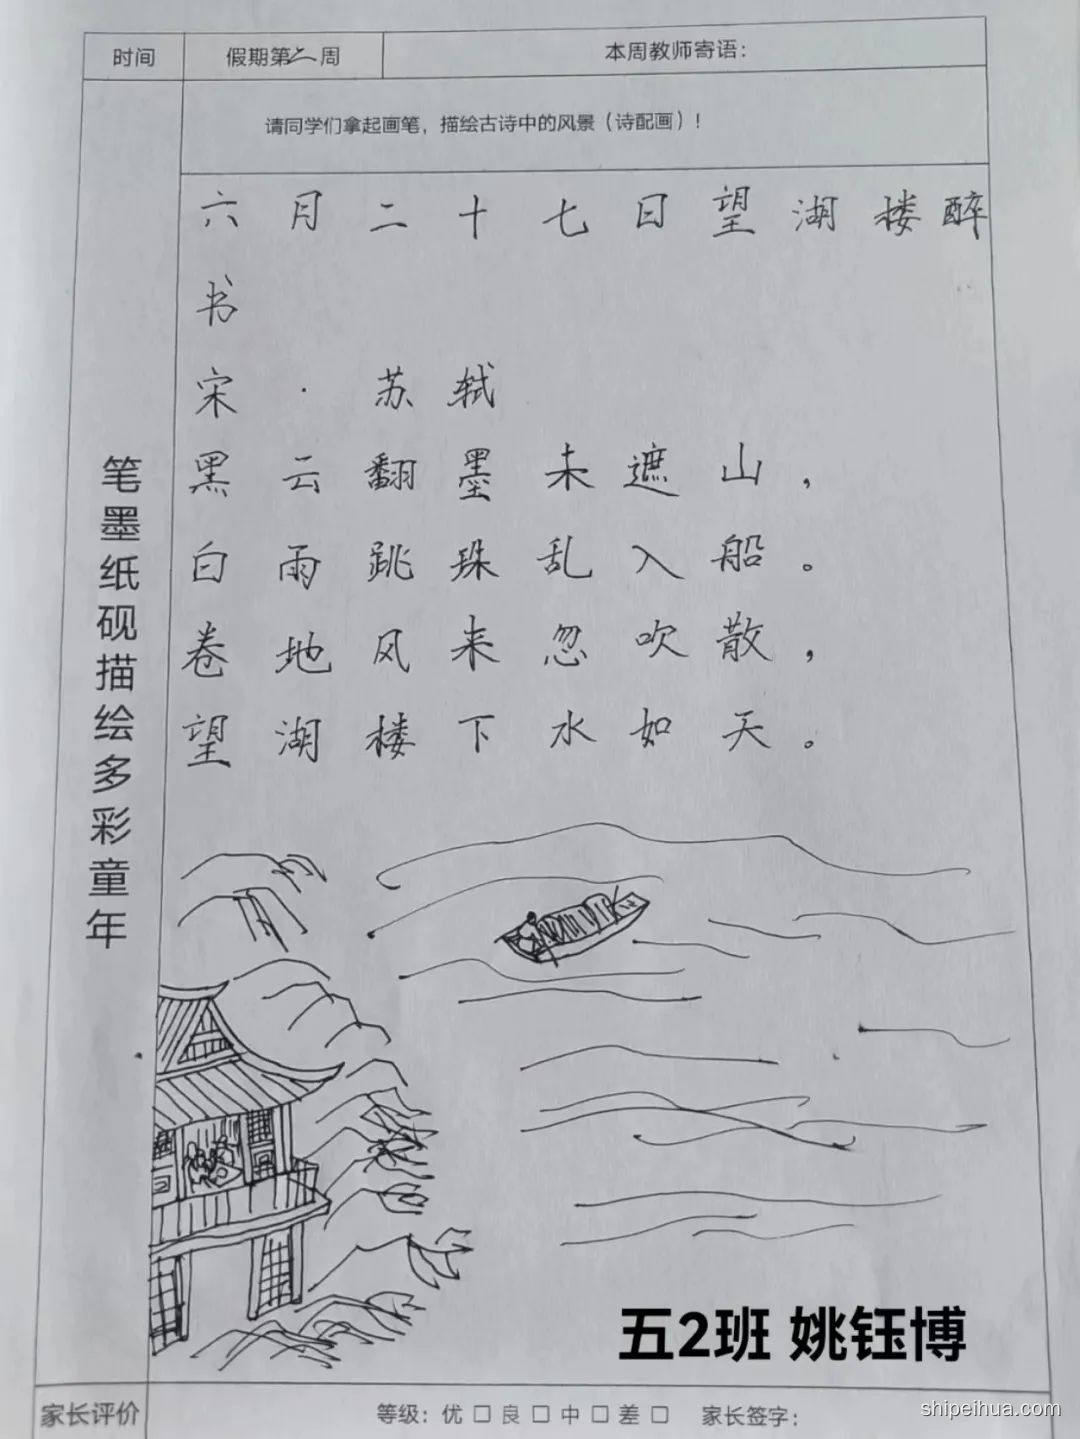 时间 假期第二周 本周教师寄语：
请同学们拿起画笔，描绘古诗中的风景（诗配画）！
六月二十七日望湖楼醉
书
宋·苏轼
黑云翻墨未遮山，
白雨跳珠乱入船。
卷地风来忽吹散，
望湖楼下水如天。
笔墨纸砚描绘多彩童年
五2班 姚钰博
家长评价 等级：优□良□中□差□ 家长签字：
shipeihua.com